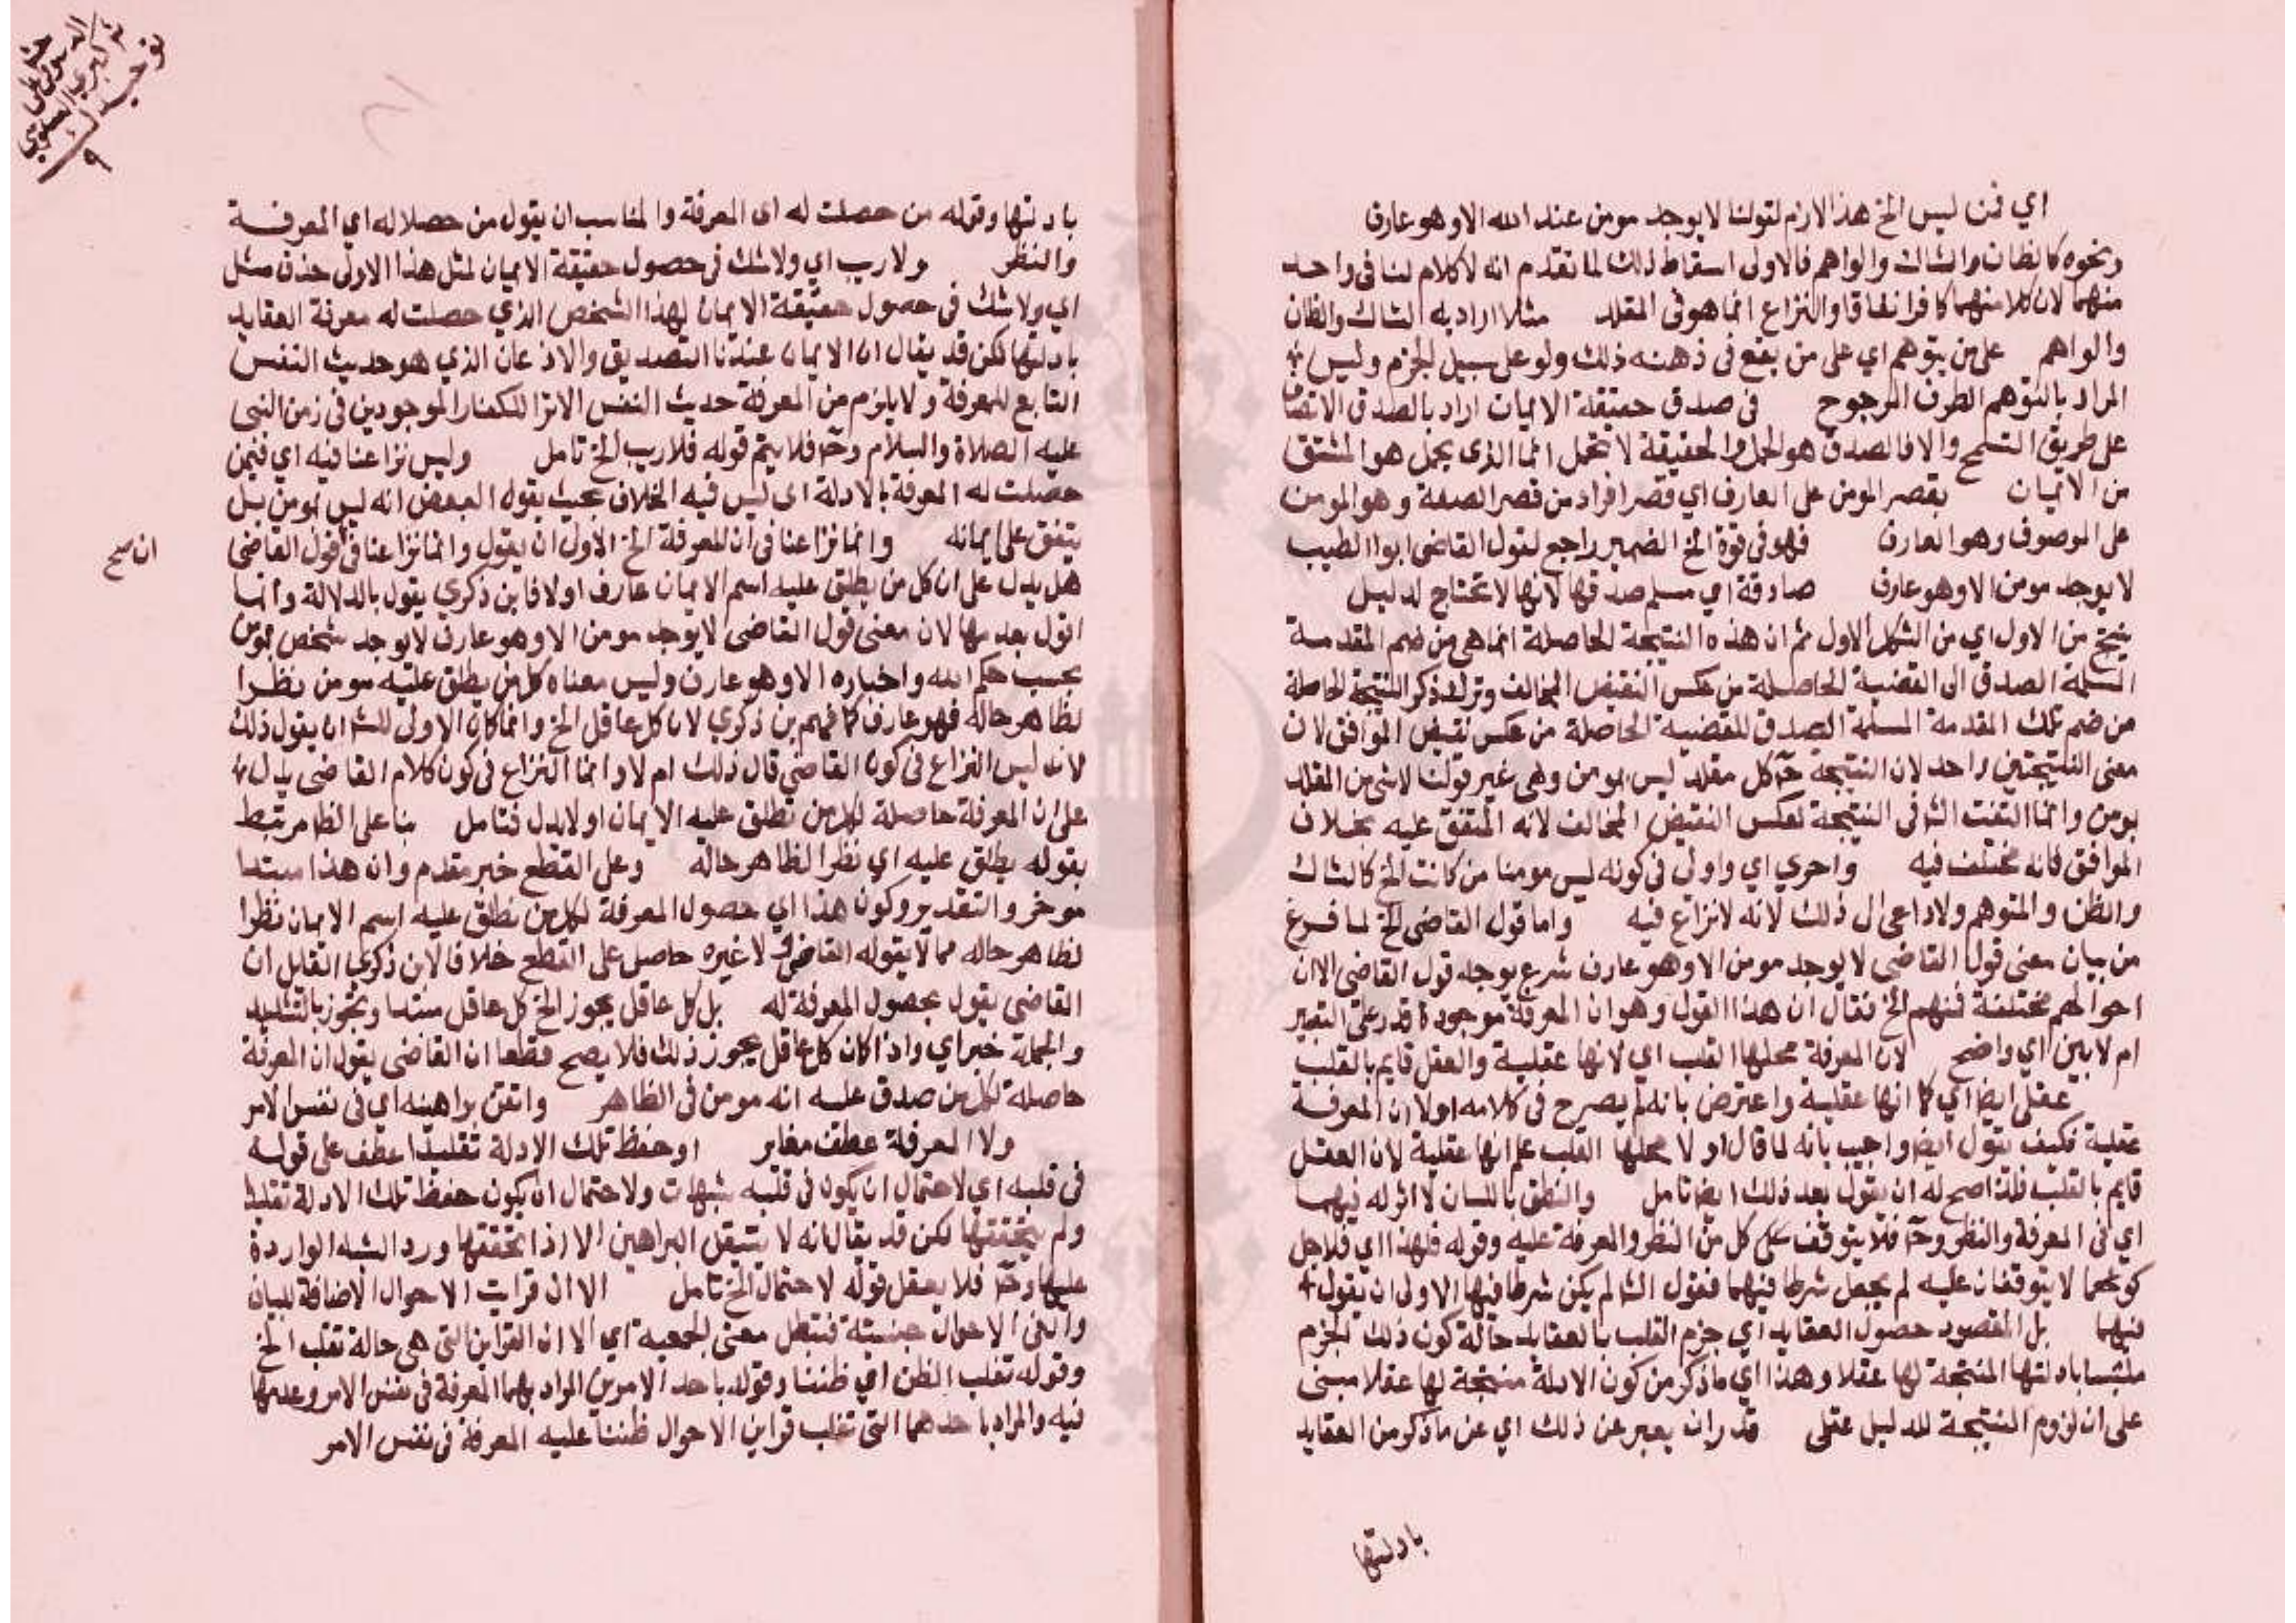 اي فمن ليس الخ هذا لازم لقولنا لا يوجد مومن عند الله الا وهو عارف
ونحوه كالظان والشاك والواهم فالاولى اسقاط ذلك لما تقدم انه لا كلام لنا فى واحد
منهما لان كلا منهما كافر اتفاقا والنزاع انما هو فى المقلد مثلا اراد به الشاك والظان
والواهم على من يتوهم اي على من يقع فى ذهنه ذلك ولو على سبيل الجزم وليس
المراد بالتوهم الطرف المرجوح فى صدق حقيقة الايمان اراد بالصدق الاتصاف
على طريق التسمح والا فالصدق هو الحمل والحقيقة لا تحمل انما الذى يحمل هو المشتق
من الايمان بقصر المومن على العارف اي قصر افراد من قصر الصفة وهو المومن
على الموصوف وهو العارف فهو فى قوة الخ الضمير راجع لقول القاضى ابوا الطيب
لا يوجد مومن الا وهو عارف صادقة اي مسلم صدقها لانها لا تحتاج لدليل
ينتج من الاول اي من الشكل الاول ثم ان هذه النتيجة الحاصلة انما هى من ضم المقدمة
المسلمة الصدق الى القضية الحاصلة من عكس النقيض المخالف وترك ذكر النتيجة الحاصلة
من ضم تلك المقدمة المسلمة الصدق للقضية الحاصلة من عكس نقيض الموافق لان
معنى النتيجتين واحد لان النتيجة ح كل مقلد ليس بمومن وهى غير قولنا لا شى من المقلد
بمومن وانما التفت الش فى النتيجة لعكس النقيض المخالف لانه المتفق عليه بخلاف
الموافق فانه مختلف فيه واحري اي واولى فى كونه ليس مومنا من كانت الخ كالشاك
والظن والمتوهم ولا داعى ال ذلك لانه لا نزاع فيه واما قول القاضى الخ لما فرغ
من بيان معنى قول القاضى لا يوجد مومن الا وهو عارف شرع يوجه قول القاضى الا ان
احوالهم مختلفة فمنهم الخ فقال ان هذا القول وهو ان المعرفة موجودة قدر على التعبير
ام لا بين اي واضح لان المعرفة محلها القلب اي لانها عقلية والعقل قايم بالقلب
عقلى ايضا اي كما انها عقلية واعترض بانه لم يصرح فى كلامه اولا ان المعرفة
عقلية فكيف يقول ايضا واجيب بانه لما قال اولا محلها القلب علم انها عقلية لان العقل
قايم بالقلب فلذا صح له ان يقول بعد ذلك ايضا تامل والنطق باللسان لا اثر له فيهما
اي فى المعرفة والنظر وح فلا يتوقف على كل من النظر والمعرفة عليه وقوله فلهذا اي فلاجل
كونهما لا يتوقفان عليه لم يجعل شرطا فيهما فقول الش لم يكن شرطا فيها الاولى ان يقول
فيهما بل المقصود حصول العقايد اي جزم القلب بالعقايد حالة كون ذلك الجزم
ملتبسا بادلتها المنتجة لها عقلا وهذا اي ما ذكر من كون الادلة منتجة لها عقلا مبنى
على ان لزوم النتيجة للدليل عقلى قدر ان يعبر عن ذلك اي عن ما ذكر من العقايد
بادلتها
بادلتها وقوله من حصلت له اى المعرفة والمناسب ان يقول من حصلا له اي المعرفة
والنظر ولا ريب اي ولا شك فى حصول حقيقة الايمان لمثل هذا الاولى حذف مثل
اي ولا شك فى حصول حقيقة الايمان لهذا الشخص الذي حصلت له معرفة العقايد
بادلتها لكن قد يقال ان الايمان عندنا التصديق والاذعان الذي هو حديث النفس
التابع للمعرفة ولا يلزم من المعرفة حديث النفس الا ترا للكفار الموجودين فى زمن النبى
عليه الصلاة والسلام وح فلا يتم قوله فلا ريب الخ تامل وليس نزاعنا فيه اي فيمن
حصلت له المعرفة بالادلة اى ليس فيه الخلاف بحيث يقول البعض انه ليس بمومن بل
يتفق على ايمانه وانما نزاعنا فى ان المعرفة الخ الاولى ان يقول وانما نزاعنا فى قول القاضى
ان صح
هل يدل على ان كل من يطلق عليه اسم الايمان عارف او لا فابن ذكري يقول بالدلالة وانما
اقول بعدمها لان معنى قول القاضى لا يوجد مومن الا وهو عارف لا يوجد شخص مومن
بحسب حكم الله واخباره الا وهو عارف وليس معناه كل من يطلق عليه مومن نظرا
لظاهر حاله فهو عارف كما فهم بن ذكري لان كل عاقل الخ وانما كان الاولى للش ان يقول ذلك
لانه ليس النزاع فى كون القاضى قال ذلك ام لا وانما النزاع فى كون كلام القاضى يدل
على ان المعرفة حاصلة لكل من تطلق عليه الايمان او لا يدل فتامل بنا على الظاهر مرتبط
بقوله يطلق عليه اي نظرا لظاهر حاله وعلى القطع خبر مقدم وان هذا مبتدا
موخر والتقدير وكون هذا اي حصول المعرفة لكل من نطلق عليه اسم الايمان نظرا
لظاهر حاله مما لا يقوله القاضى ولا غيره حاصل على القطع خلافا لابن ذكري القايل ان
القاضى يقول بحصول المعرفة له بل كل عاقل يجوز الخ كل عاقل مبتدا ويجوز بالتشديد
والجملة خبر اي واذا كان كل عاقل يجوز ذلك فلا يصح قطعا ان القاضى يقول ان المعرفة
حاصلة لكل من صدق عليه انه مومن فى الظاهر واتقن براهينه اي فى نفس الامر
ولا المعرفة عطف مغاير او حفظ تلك الادلة تقليدا عطف على قوله
فى قلبه اي لاحتمال ان يكون فى قلبه شبهات ولاحتمال ان يكون حفظ تلك الادلة تقليدا
ولم يتحققها لكن قد يقال انه لا يتيقن البراهين الا اذا تحققها ورد الشبه الواردة
عليها وح فلا يعقل قوله لاحتمال الخ تامل الا ان قراين الاحوال الاضافة للبيان
وال فى الاحوال جنسية فتبطل معنى الجمعية اي الا ان القراين التى هى حالة تغلب الخ
وقوله تغلب الظن اي ظننا وقوله باحد الامرين المراد بهما المعرفة فى نفس الامر وعدمها
فيه والمراد باحدهما التى تغلب قراين الاحوال ظننا عليه المعرفة فى نفس الامر